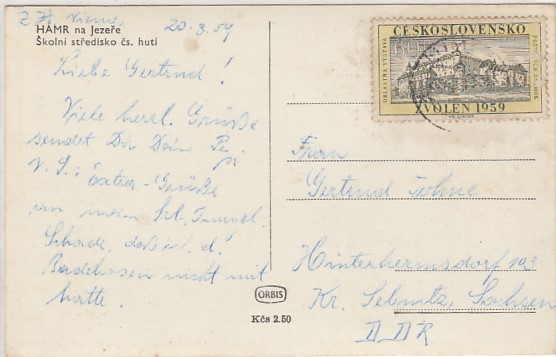 20.3.59
HAMR na Jezeře
Školní středisko čs. hutí
Liebe Gertrud!
Viele herzl. Grüße
sendet Dir Dein
N.S.: Extra-Grüße
an mein
Schade, daß ich d.
Badehosen nicht mit
hatte.
ČESKOSLOVENSKO
60
ZVOLEN 1959
Frau
Gertrud
Hinterhermsdorf 103
Kr. Sebnitz, Sachsen
DDR
ORBIS
Kčs 2.50